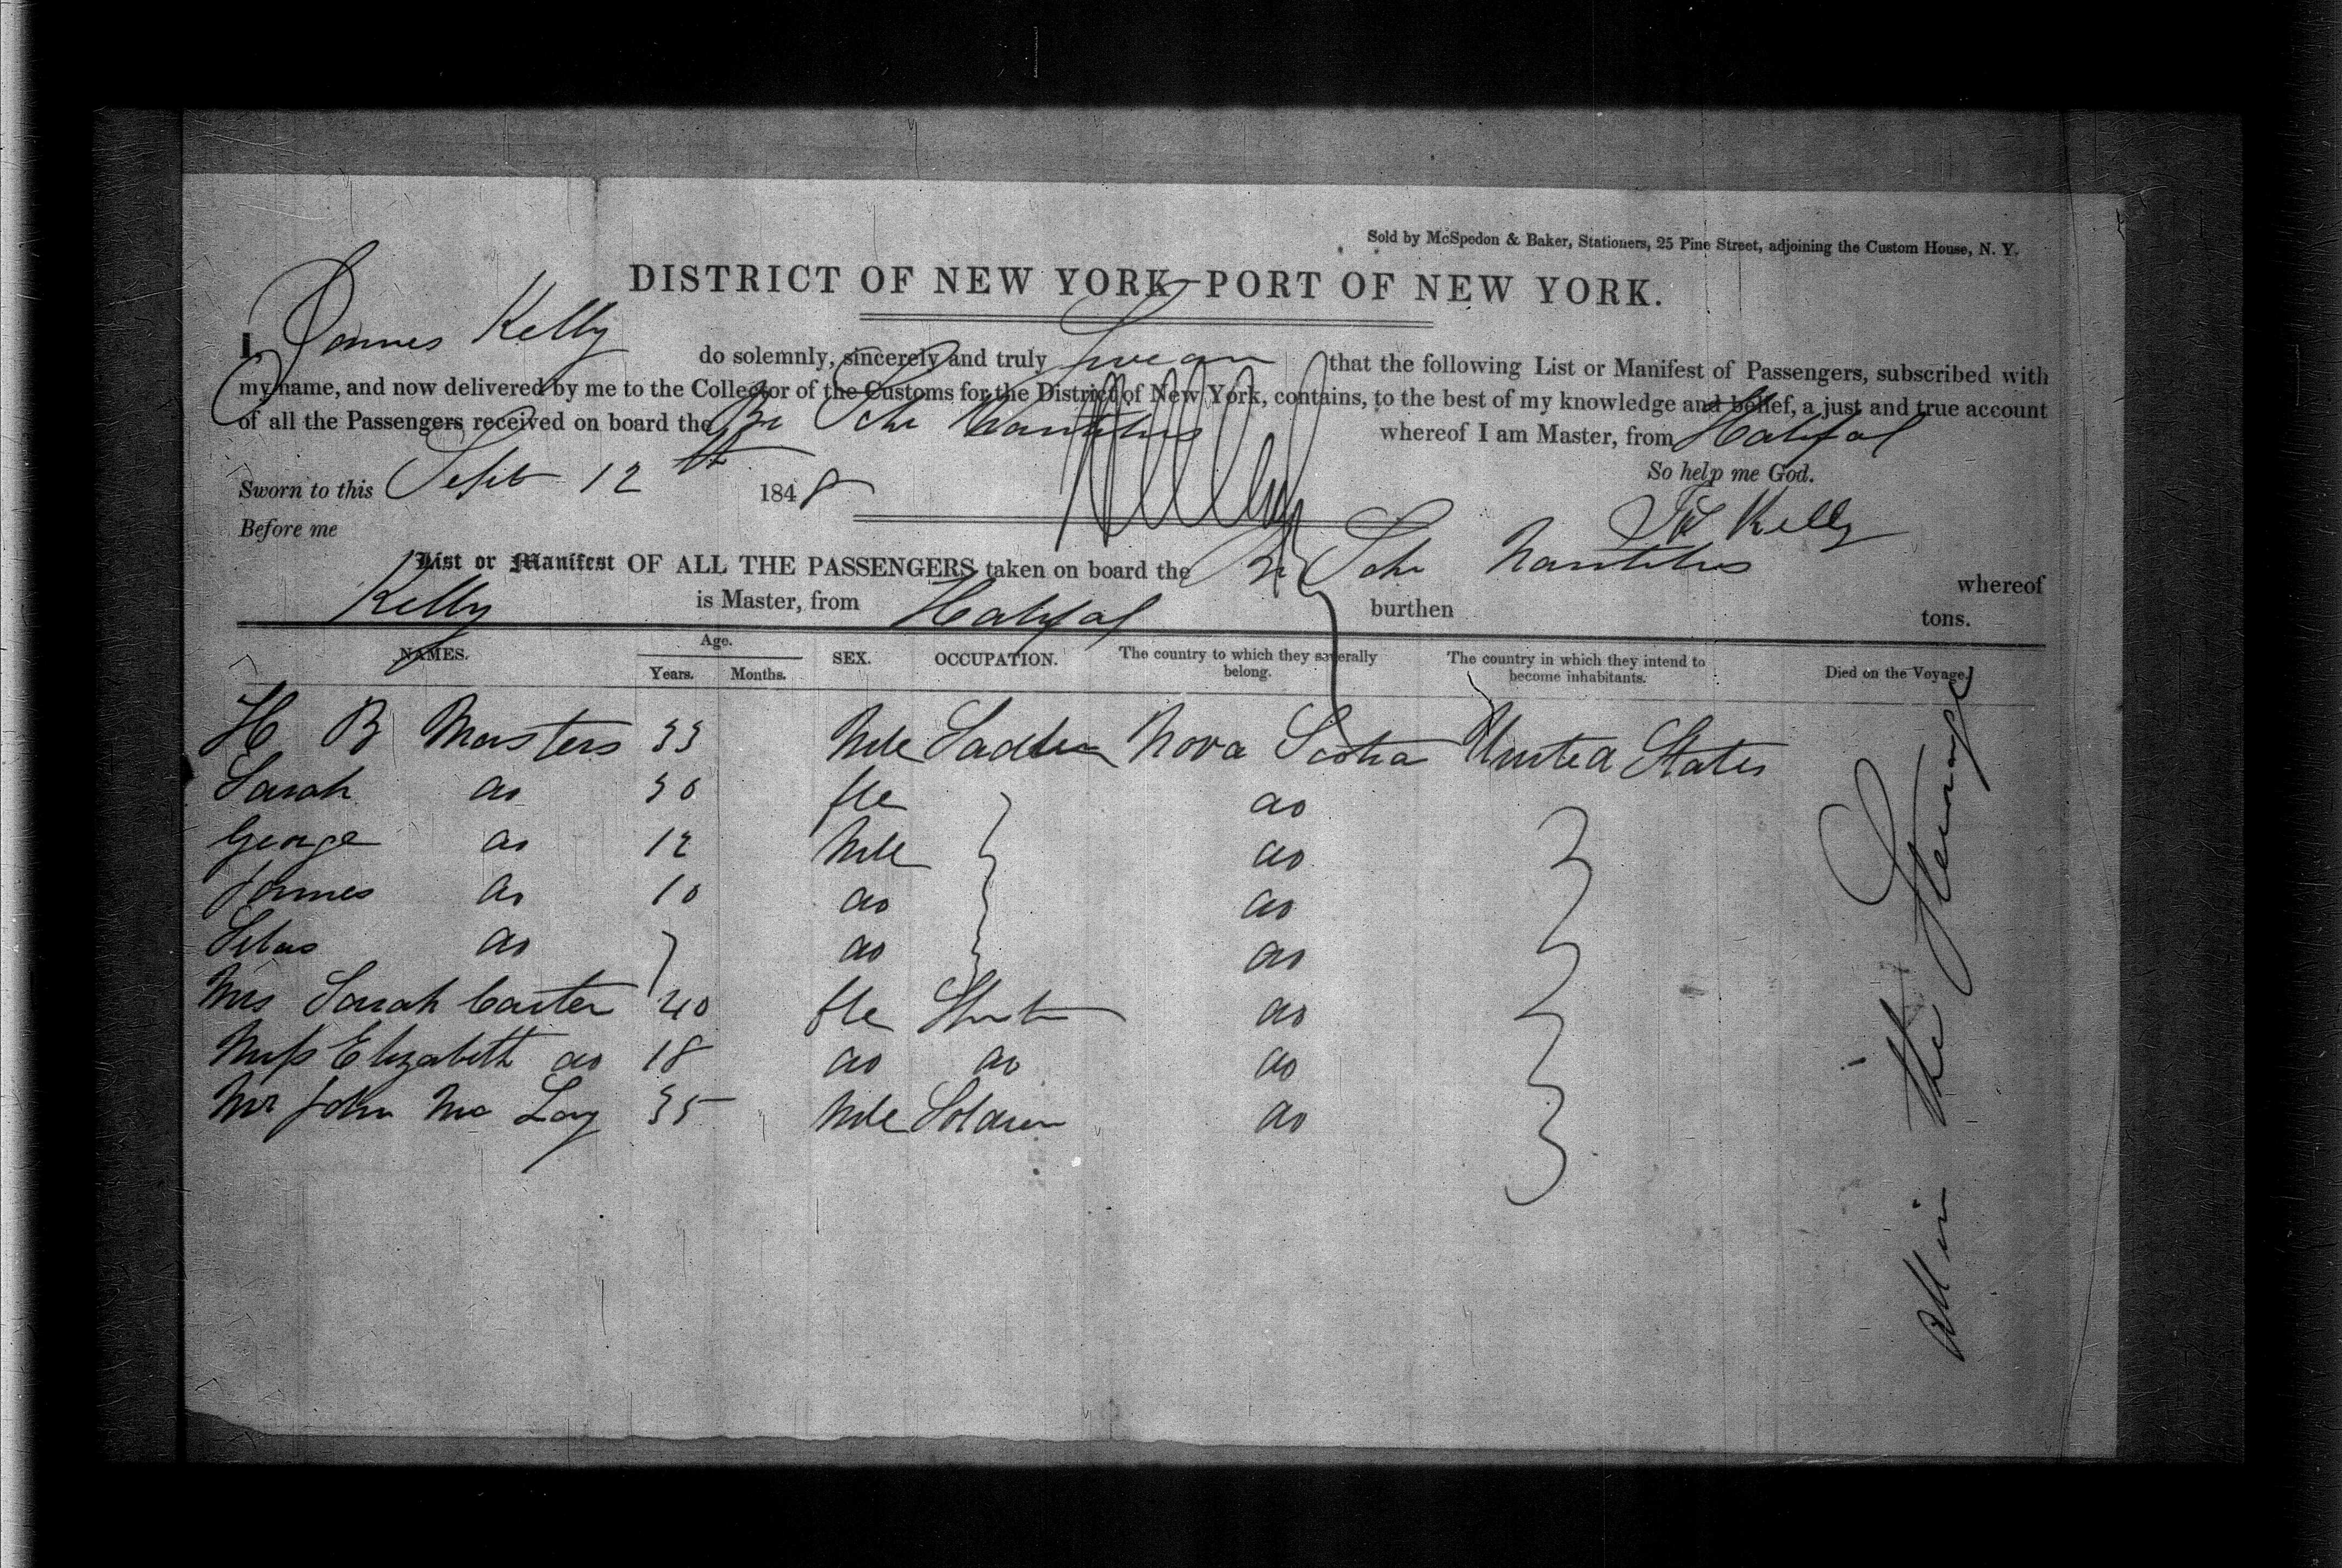 Sold by McSpedon & Baker, Stationers, 25 Pine Street, adjoining the Custom House, N. Y.
DISTRICT OF NEW YORK—PORT OF NEW YORK.
I, James Kelly do solemnly, sincerely and truly swear that the following List or Manifest of Passengers, subscribed with
my name, and now delivered by me to the Collector of the Customs for the District of New York, contains, to the best of my knowledge and belief, a just and true account
of all the Passengers received on board the Br Schr Nautilus whereof I am Master, from Halifax
So help me God.
Sworn to this Sept 12th 1848
Js Kelly
Before me
List or Manifest OF ALL THE PASSENGERS taken on board the Br Schr Nautilus whereof
Kelly is Master, from Halifax burthen tons.
NAMES. Age. Years. Months. SEX. OCCUPATION. The country to which they severally belong. The country in which they intend to become inhabitants. Died on the Voyage.
H B Masters 33 Mle Sadler Nova Scotia United States
Sarah do 30 fle do
George do 12 Mle do
James do 10 do do
Silas do do do
Mrs Sarah Carter 40 fle do
Miss Elizabeth do 18 do do do
Mr John Mc Lay 35 Mle Soldier do
All in the Steerage